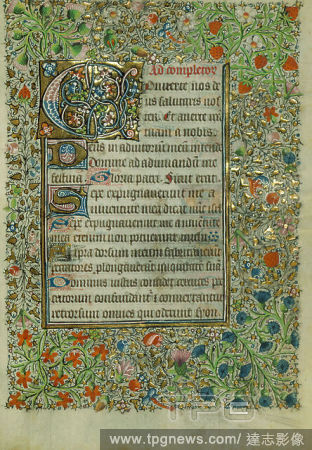 Ad completor
Converte nos de
us salutaris nos
ter. Et averte ira
tuam a nobis.
Deus in adiutorium meum intende
Domine ad adiuvandum me
festina. Gloria patri. Sicut erat.
Sepe expugnaverunt me a
iuventute mea dicat nunc isrl
Sepe expugnaverunt me a iuventute
mea etenim non potuerunt michi
Supra dorsum meum fabricaverunt
peccatores, prolongaverunt iniquitatem suam
Dominus iustus concidet cervices pec
catorum confundantur et convertantur
retrorsum omnes qui oderunt syon.
TPG
www.tpgnews.com/ 達志影像